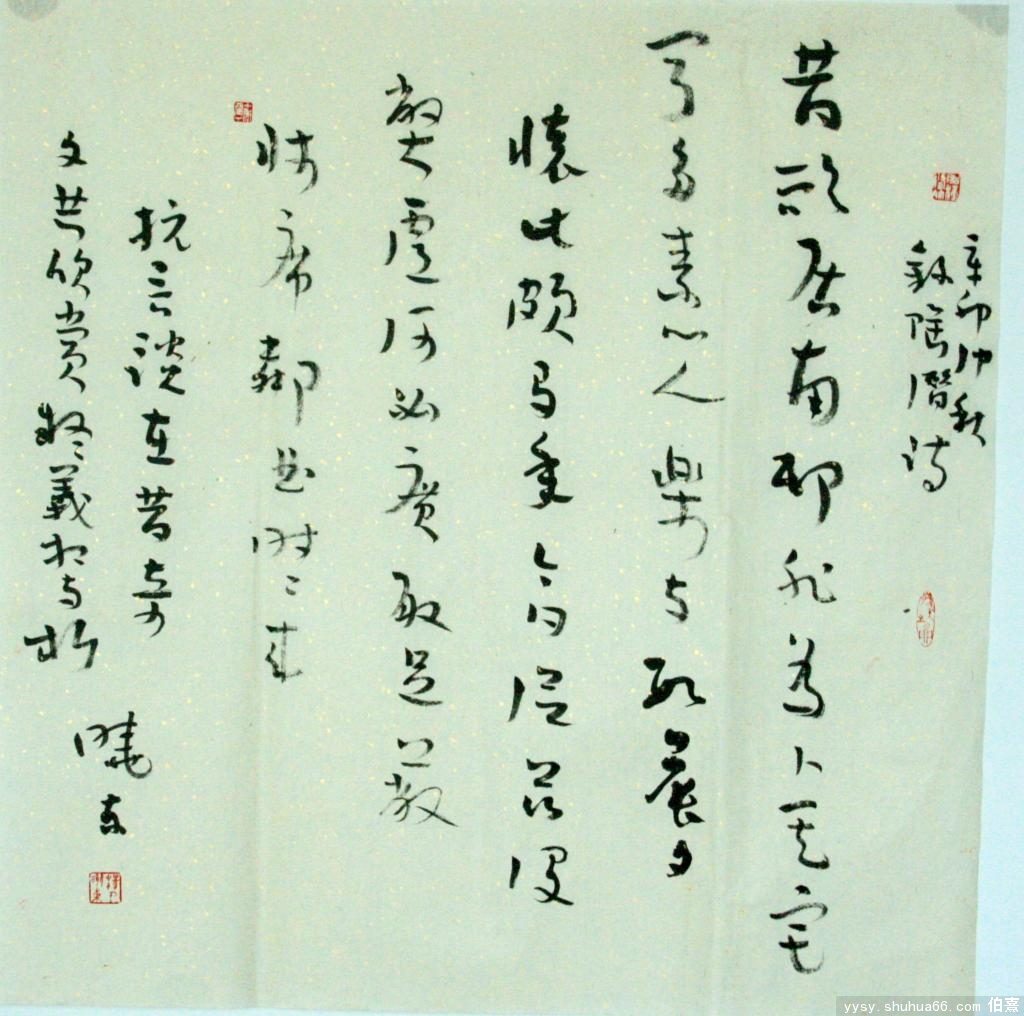 辛卯仲秋
錄陶潛詩
昔欲居南邨非為卜其宅
聞多素心人樂與數晨夕
懷此頗有年今日從茲役
弊廬何必廣取足蔽
牀席鄰曲時〻來
抗言談在昔奇
文共欣賞疑義相與析
曉東
yysy.shuhua66.com 伯熹